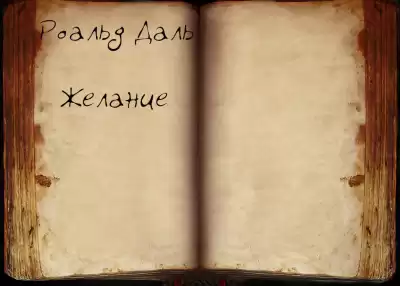 Роальд Даль
Желание